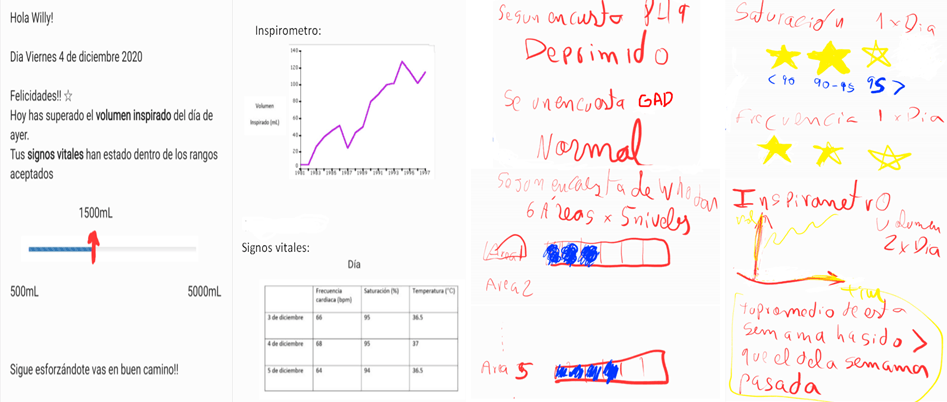 Hola Willy!
Dia Viernes 4 de diciembre 2020
Felicidades!! ☆
Hoy has superado el volumen inspirado del día de
ayer.
Tus signos vitales han estado dentro de los rangos
aceptados
1500mL
500mL 5000mL
Sigue esforzándote vas en buen camino!!
Inspirometro:
Volumen
Inspirado (mL)
140
120
100
80
60
40
20
0
1981 1983 1985 1987 1989 1991 1993 1995 1997
Signos vitales:
Día
Frecuencia cardiaca (bpm) Saturación (%) Temperatura (°C)
3 de diciembre 66 95 36.5
4 de diciembre 68 95 37
5 de diciembre 64 94 36.5
Deprimido
GAD
Normal
6 Áreas x 5 niveles
Area 2
Area 5
Saturación 1 x Dia
< 90 90-95 95 >
Frecuencia 1 x Dia
Inspirometro
Volumen
2 x Dia
tu promedio de esta
semama ha sido >
que el de la semama
pasada